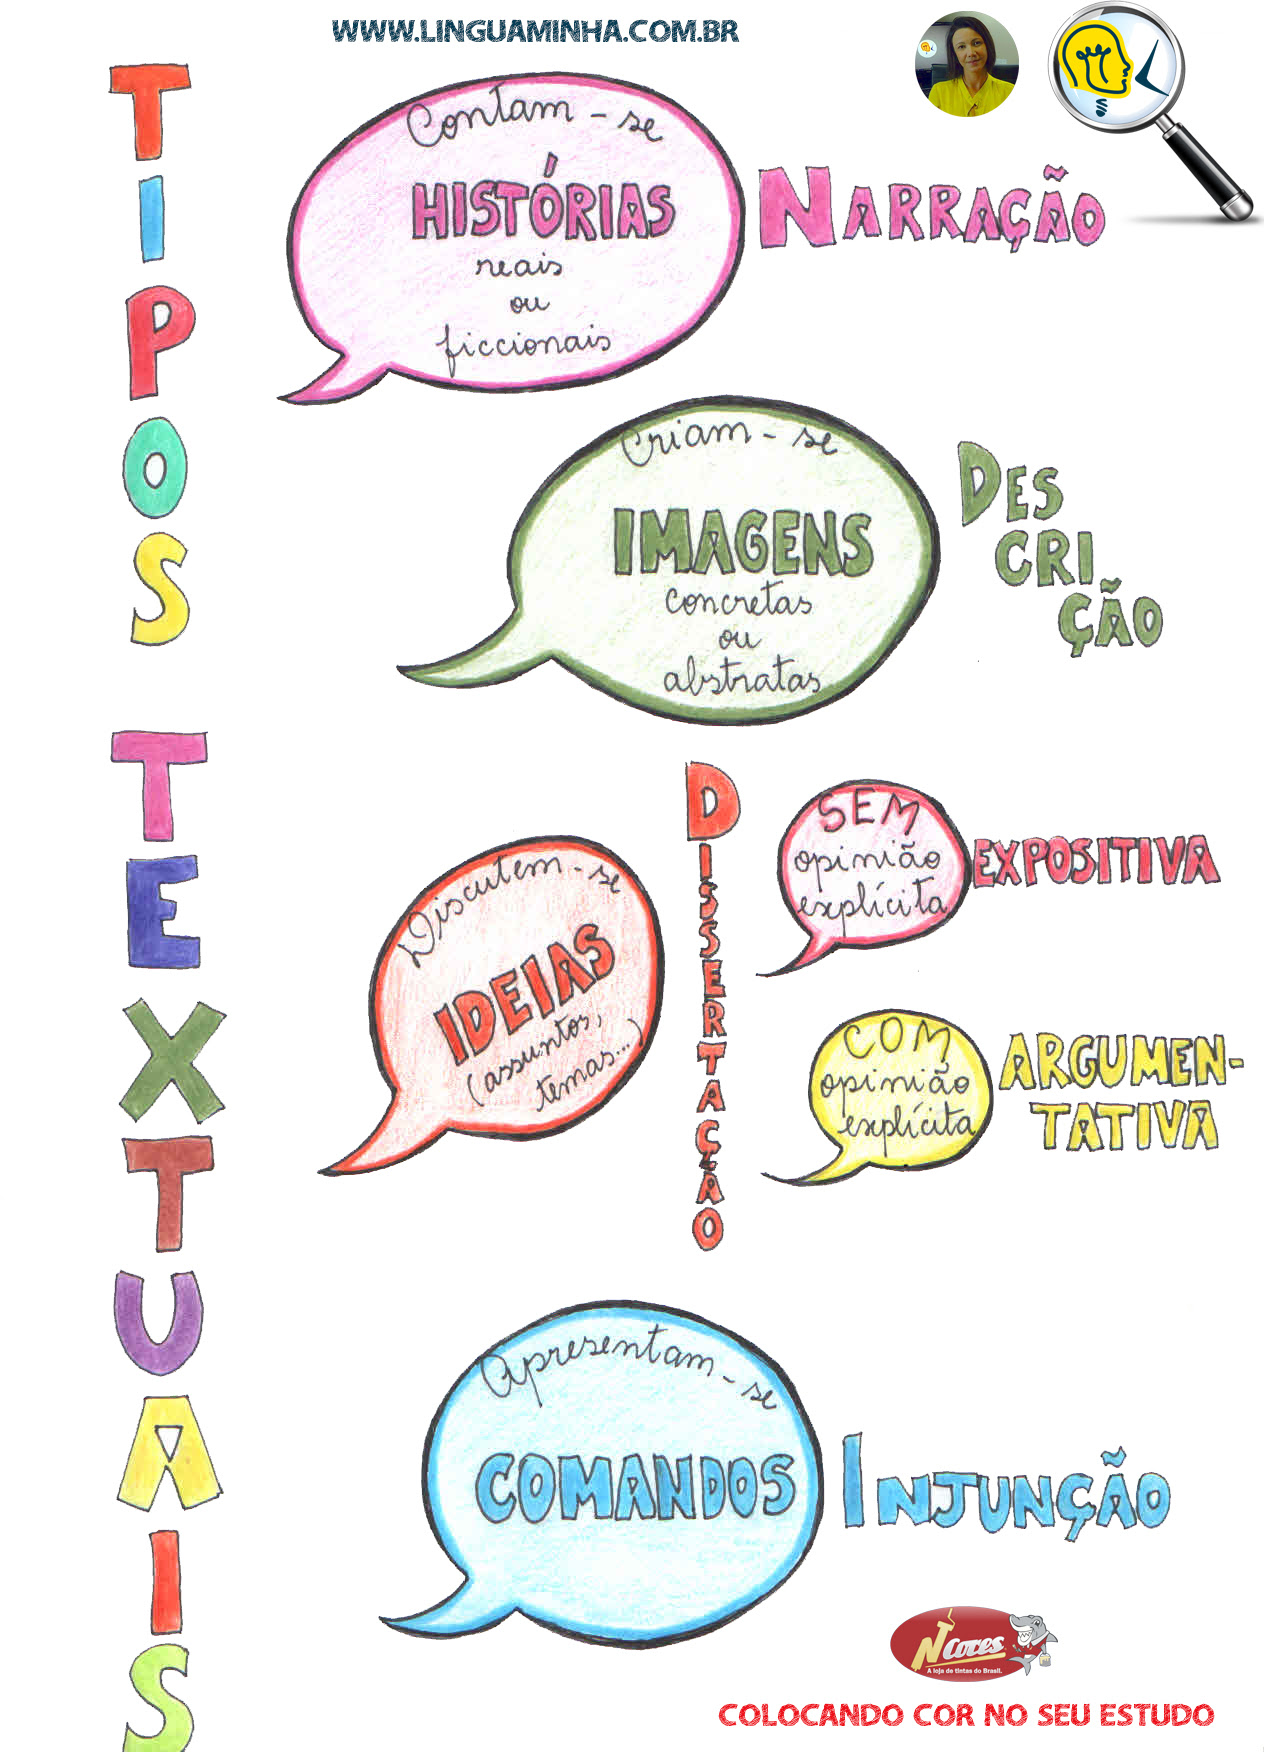 WWW.LINGUAMINHA.COM.BR
TIPOS TEXTUAIS
Contam-se
HISTÓRIAS
reais
ou
ficcionais
NARRAÇÃO
Criam-se
IMAGENS
concretas
ou
abstratas
DES
CRI
ÇÃO
Discutem-se
IDEIAS
(assuntos,
temas...)
DISSERTAÇÃO
SEM
opinião
explícita
EXPOSITIVA
COM
opinião
explícita
ARGUMEN-
TATIVA
Apresentam-se
COMANDOS
INJUNÇÃO
NCores
A loja de tintas do Brasil.
COLOCANDO COR NO SEU ESTUDO